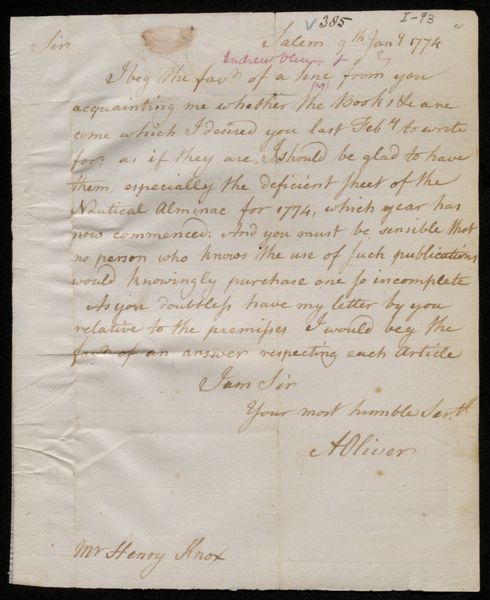 ✓385 I-93
Sir Salem 9th Jany 1774
Andrew Oliver
I beg the favr. of a line from you
acquainting me whether the Books &c are
come which I desired you last Feby to write
for; as if they are, I should be glad to have
them, especially the deficient sheet of the
Nautical Alminac for 1774, which year has
now commenced: And you must be sensible that
no person who knows the use of such publications
would knowingly purchase one so incomplete
As you doubtless have my letter by you
relative to the premisses I would beg the
favr. of an answer respecting each Article
I am Sir
Your most humble Servt.
A Oliver
Mr Henry Knox